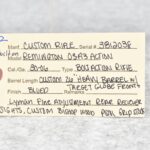 Manf. CUSTOM RIFLE Serial# 3812038
Model REMINGTON 03A3 ACTION
Cal./Ga. 30-06 Type BOLT ACTION RIFLE
Barrel Length CUSTOM 26" HEAVY BARREL W/
Finish BLUED TARGET GLOBE FRONT
Remarks
LYMAN FINE ADJUSTMENT REAR RECEIVER
SIGHTS, CUSTOM BISHOP WOOD STOCK